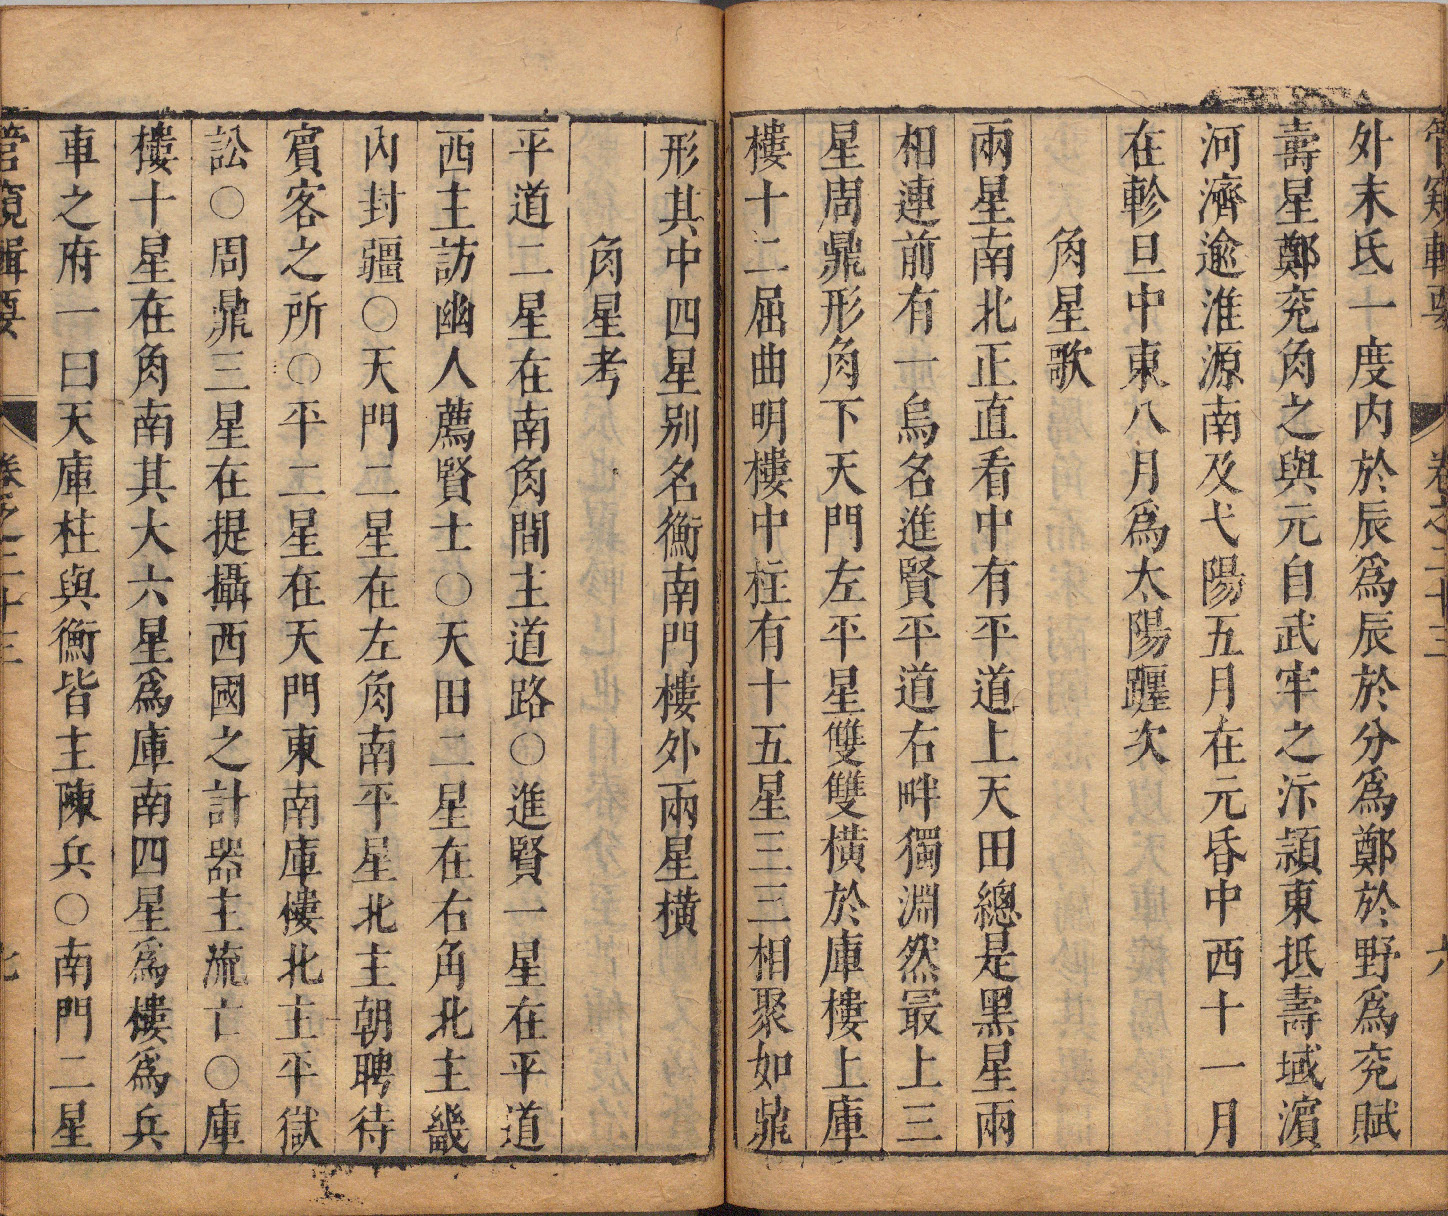 管窺輯要 卷之二十三 六
外末氐一度内於辰爲辰於分爲鄭於野爲兖賦
壽星鄭兖角之與元自武牢之沂潁東抵壽域濵
河濟逾淮源南及弋陽五月在元昏中西十一月
在軫旦中東八月爲太陽躔次
角星歌
兩星南北正直看中有平道上天田總是黑星兩
相連前有一烏名進賢平道右畔獨淵然最上三
星周鼎形角下天門左平星雙雙橫於庫樓上庫
樓十二屈曲明樓中柱有十五星三三相聚如鼎
形其中四星别名衡南門樓外兩星橫
角星考
平道二星在南角間主道路○進賢一星在平道
西主訪幽人薦賢士○天田二星在右角北主畿
内封疆○天門二星在左角南平星北主朝聘待
賓客之所○平二星在天門東南庫樓北主平獄
訟○周鼎三星在提攝西國之計器主流亡○庫
樓十星在角南其大六星爲庫南四星爲樓爲兵
車之府一曰天庫柱與衡皆主陳兵○南門二星
管窺輯要 卷之二十三